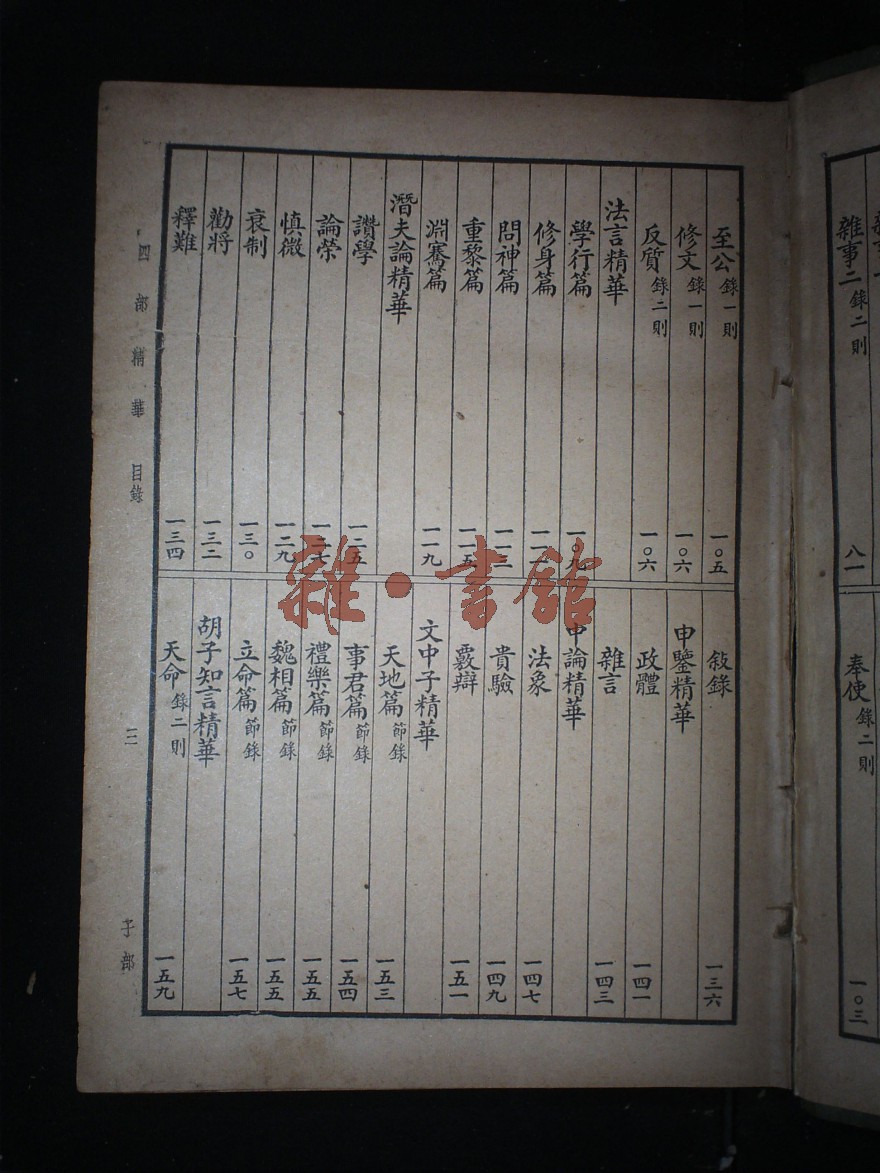 至公 錄一則 一〇五
修文 錄一則 一〇六
反質 錄二則 一〇六
法言精華
學行篇 一〇九
修身篇
問神篇 一一三
重黎篇 一一五
淵騫篇 一一九
潛夫論精華
讚學 一二五
論榮 一二七
慎微 一二九
衰制 一三〇
勸將 一三二
釋難 一三四
敍錄 一三六
申鑒精華
政體 一四一
雜言 一四三
中論精華
法象 一四七
貴驗 一四九
覈辯 一五一
文中子精華
天地篇 節錄 一五三
事君篇 節錄 一五四
禮樂篇 節錄 一五五
魏相篇 節錄 一五五
立命篇 節錄 一五七
胡子知言精華
天命 錄二則 一五九
四部精華 目錄 三 子部
雜事二 錄二則 八一
奉使 錄二則 一〇三
雜·書館